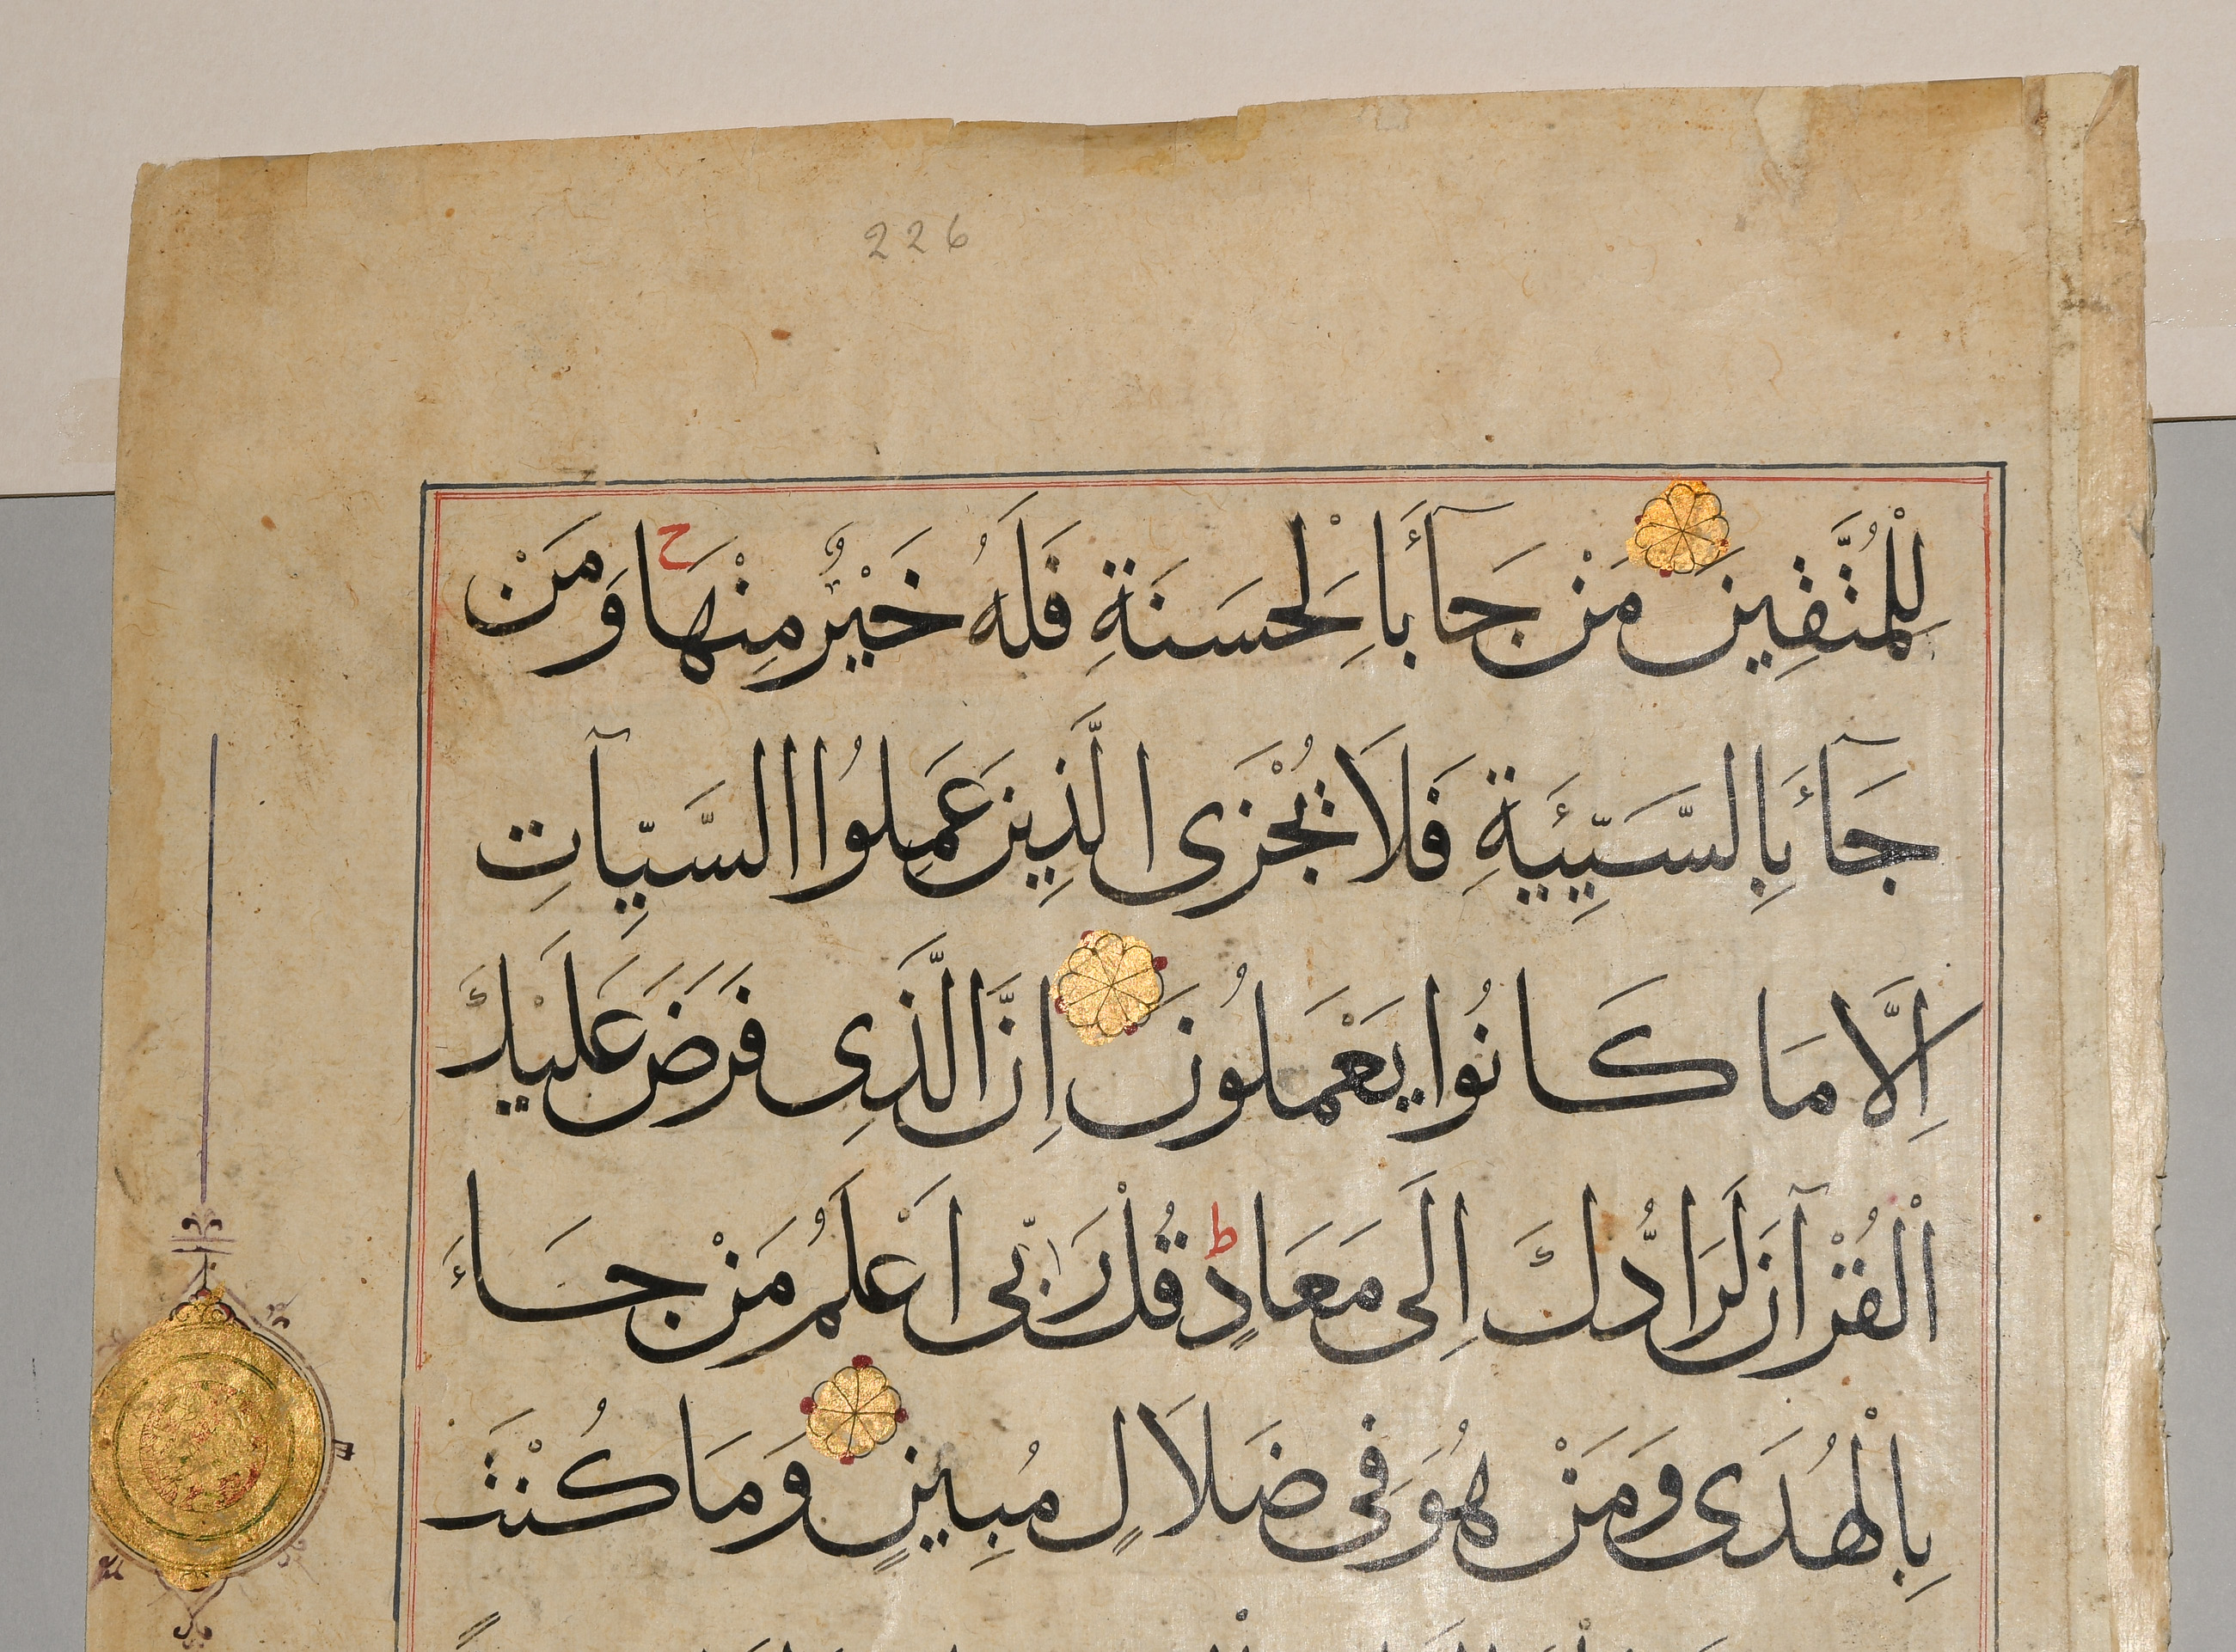 226
لِلْمُتَّقِينَ مَنْ جَآءَ بِالْحَسَنَةِ فَلَهُ خَيْرٌ مِنْهَا ح وَمَنْ
جَآءَ بِالسَّيِّئَةِ فَلَا تُجْزَى الَّذِينَ عَمِلُوا السَّيِّآتِ
اِلَّا مَا كَانُوا يَعْمَلُونَ اِنَّ الَّذِى فَرَضَ عَلَيْكَ
الْقُرْآنَ لَرَادُّكَ اِلَى مَعَادٍ ط قُلْ رَبِّى اَعْلَمُ مَنْ جَاءَ
بِالْهُدَى وَمَنْ هُوَ فِى ضَلَالٍ مُبِينٍ وَمَا كُنْتَ